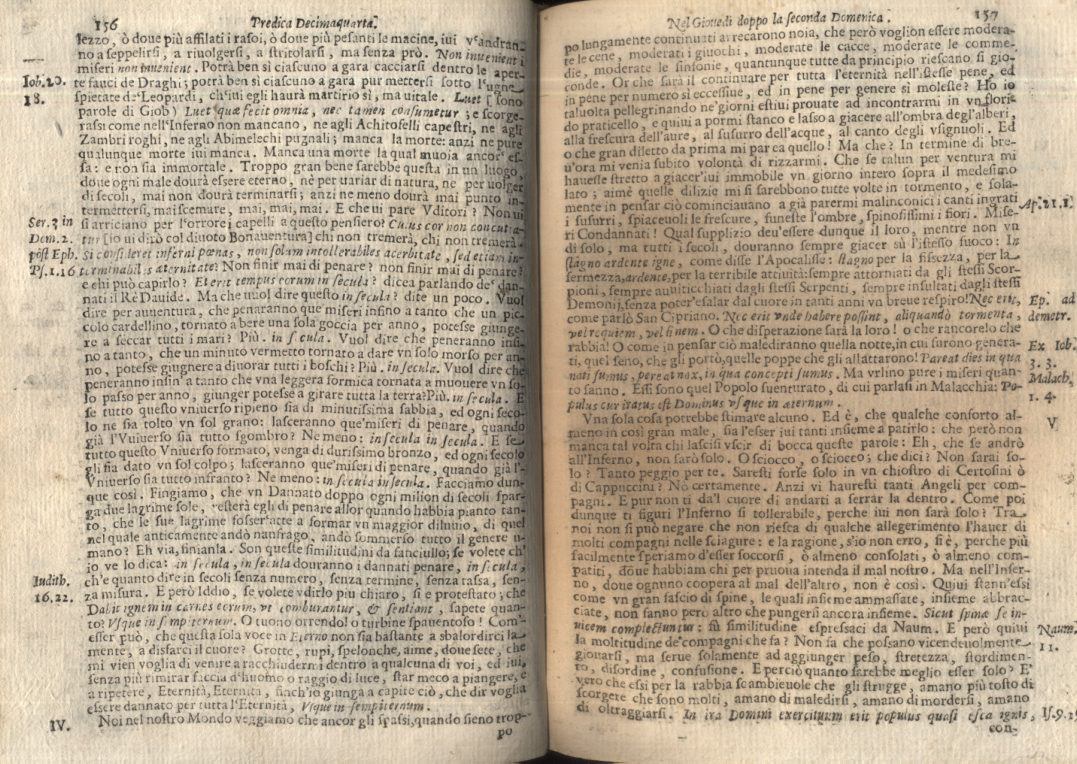 156 Predica Decimaquarta.
lezzo, ò doue più affilati i rasoi, ò doue più pesanti le macine, iui v'andran-
no a seppelirsi, a riuolgersi, a stritolarsi, ma senza prò. Non inuenient i
miseri non inuenient. Potrà ben sì ciascuno a gara cacciarsi dentro le aper-
te fauci de Draghi; potrà ben sì ciascuno a gara pur mettersi sotto l'ugne
spietate de' Leopardi, ch'iui egli haurà martirio sì, ma uitale. Luet [sono
parole di Giob) Luet quæ fecit omnia, nec tamen consumetur; e scorge-
rassi come nell'Inferno non mancano, ne agli Achitofelli capestri, ne agli
Zambri roghi, ne agli Abimelechi pugnali; manca la morte: anzi ne pure
qualunque morte iui manca. Manca una morte la qual muoia ancor' es-
sa: e non sia immortale. Troppo gran bene sarebbe questa in un luogo,
doue ogni male dourà essere eterno, nè per uariar di natura, ne per uolger
di secoli, mai non dourà terminarsi; anzi ne meno dourà mai punto in-
termettersi, mai scemare, mai, mai, mai. E che ui pare Vditori? Non ui
si arricciano per l'orrore i capelli a questo pensiero? Cuius cor non concutia-
tur [io ui dirò col diuoto Bonauentura] chi non tremerà, chi non tremerà
Si consideret inferni pœnas, non solum intollerabiles acerbitate, sed etiam in-
terminabiles æternitate? Non finir mai di penare? non finir mai di penare?
e chi può capirlo? Et erit tempus eorum in secula? dicea parlando de' dan-
nati il Rè Dauide. Ma che uuol dire questo in secula? dite un poco. Vuol
dire per auuentura, che penaranno que' miseri infino a tanto che un pic-
colo cardellino, tornato a bere una sola goccia per anno, potesse giunge-
re a seccar tutti i mari? Più. in secula. Vuol dire che peneranno insi-
no a tanto, che un minuto vermetto tornato a dare vn solo morso per an-
no, potesse giugnere a diuorar tutti i boschi? Più. in secula. Vuol dire che
peneranno insin' a tanto che vna leggera formica tornata a muouere vn so-
lo passo per anno, giunger potesse a girare tutta la terra? Più. in secula. E
se tutto questo vniuerso ripieno sia di minutissima sabbia, ed ogni seco-
lo ne sia tolto vn sol grano: lasceranno que' miseri di penare, quando
già l'Vniuerso sia tutto sgombro? Ne meno: in secula in secula. E se
tutto questo Vniuerso formato, venga di durissimo bronzo, ed ogni secolo
gli sia dato vn sol colpo; lasceranno que' miseri di penare, quando già l'-
Vniuerso sia tutto infranto? Ne meno: in secula in secula. Facciamo dun-
que così. Fingiamo, che vn Dannato doppo ogni milion di secoli spar-
ga due lagrime sole, resterà egli di penare allor quando habbia pianto tan-
to, che le sue lagrime fosser' atte a formar vn maggior diluuio, di quel
nel quale anticamente andò naufrago, andò sommerso tutto il genere u-
mano? Eh via, finianla. Son queste similitudini da fanciullo; se volete ch'
io ve lo dica: in secula, in secula douranno i dannati penare, in secula,
ch'e quanto dire in secoli senza numero, senza termine, senza tassa, sen-
za misura. E però Iddio, se volete vdirlo piu chiaro, si e protestato; che
Dabit ignem in carnes eorum, vt comburantur, & sentiant, sapete quan-
to? Vsque in sempiternum. O tuono orrendo! o turbine spauentoso! Com'
esser può, che questa sola voce in Eterno non sia bastante a sbalordirci la
mente, a disfarci il cuore? Grotte, rupi, spelonche, aime, doue sete, che
mi vien voglia di venire a racchiudermi dentro a qualcuna di voi, ed iui,
senza più rimirar faccia d'huomo o raggio di luce, star meco a piangere, e
a ripetere, Eternità, Eternita, sinch'io giunga a capire ciò, che dir voglia
essere dannato per tutta l'Eternità, Vsque in sempiternum.
Noi nel nostro Mondo veggiamo che ancor gli spassi, quando sieno trop-
po
Iob. 20.
18.
Ser. 3 in
Dom. 2.
post Eph.
Ps. 1. 16
Iudith.
16. 22.
IV.
Nel Giouedì doppo la seconda Domenica. 157
po lungamente continuati arrecarono noia, che però voglion essere modera-
te le cene, moderati i giuochi, moderate le cacce, moderate le comme-
die, moderate le sinfonie, quantunque tutte da principio riescano sì gio-
conde. Or che sarà il continuare per tutta l'eternità nell'istesse pene, ed
in pene per numero sì eccessiue, ed in pene per genere sì moleste? Ho io
taluolta pellegrinando ne' giorni estiui prouate ad incontrarmi in vn flori-
do praticello, e quiui a pormi stanco e lasso a giacere all'ombra degl'alberi,
alla frescura dell'aure, al susurro dell'acque, al canto degli vsignuoli. Ed
o che gran diletto da prima mi parea quello! Ma che? In termine di bre-
u'ora mi venia subito volontà di rizzarmi. Che se talun per ventura mi
hauesse stretto a giacer'iui immobile vn giorno intero sopra il medesimo
lato; aimè quelle dilizie mi si sarebbono tutte volte in tormento, e sola-
mente in pensar ciò cominciauano a già parermi malinconici i canti ingrati
i susurri, spiaceuoli le frescure, funeste l'ombre, spinosissimi i fiori. Mise-
ri Condannati! Qual supplizio deu'essere dunque il loro, mentre non vn
dì solo, ma tutti i secoli, douranno sempre giacer sù l'istesso fuoco: In
stagno ardente igne, come disse l'Apocalisse: stagno per la fissezza, per la
fermezza, ardente, per la terribile attiuità: sempre attorniati da gli stessi Scor-
pioni, sempre auuiticchiati dagli stessi Serpenti, sempre insultati dagli stessi
Demonii, senza poter'esalar dal cuore in tanti anni vn breue respiro! Nec erit,
come parlò San Cipriano. Nec erit vnde habere possint, aliquando tormenta,
vel requiem, vel finem. O che disperazione sarà la loro! o che rancore! o che
rabbia! O come in pensar ciò malediranno quella notte, in cui surono genera-
ti, quel seno, che gli portò, quelle poppe che gli allattarono! Pareat dies in qua
nati sumus, pereat nox, in qua concepti sumus. Ma vrlino pure i miseri quan-
to sanno. Essi sono quel Popolo suenturato, di cui parlasi in Malacchia: Po-
pulus cui iratus est Dominus vsque in æternum.
Vna sola cosa potrebbe stimare alcuno. Ed è, che qualche conforto al-
meno in così gran male, sia l'esser iui tanti insieme a patirlo: che però non
manca tal volta chi lascisi vscir di bocca queste parole: Eh, che se andrò
all'Inferno, non sarò solo. O sciocco, o sciocco; che dici? Non sarai so-
lo? Tanto peggio per te. Saresti forse solo in vn chiostro di Certosini ò
di Cappuccini? Nò certamente. Anzi vi hauresti tanti Angeli per com-
pagni. E pur non ti da'l cuore di andarti a serrar la dentro. Come poi
dunque ti figuri l'Inferno sì tollerabile, perche iui non sarà solo? Tra
noi non si può negare che non riesca di qualche allegerimento l'hauer di
molti compagni nelle sciagure: e la ragione, s'io non erro, si è, perche più
facilmente speriamo d'esser soccorsi, ò almeno consolati, ò almeno com-
patiti, doue habbiam chi per pruoua intenda il mal nostro. Ma nell'Infer-
no, doue ognuno coopera al mal dell'altro, non è così. Quiui stann'essi
come vn gran fascio di spine, le quali insieme ammassate, insieme abbrac-
ciate, non fanno però altro che pungersi ancora insieme. Sicut spinæ se in-
uicem complectuntur: fù similitudine espressaci da Naum. E però quiui
la moltitudine de' compagni che fa? Non fa che possano vicendeuolmente
giouarsi, ma serue solamente ad aggiunger peso, stretezza, stordimen-
to, disordine, confusione. E perciò quanto sarebbe meglio esser solo? E'
vero che essi per la rabbia scambieuole che gli strugge, amano più tosto di
scorgere che sono molti, amano di maledirsi, amano di mordersi, amano
di oltraggiarsi. In ira Domini exercituum erit populus quasi esca ignis,
con-
Ap. 21. 1.
Ep. ad
demetr.
Ex Iob.
3. 3.
Malach.
1. 4.
V
Naum.
11.
Is. 9.